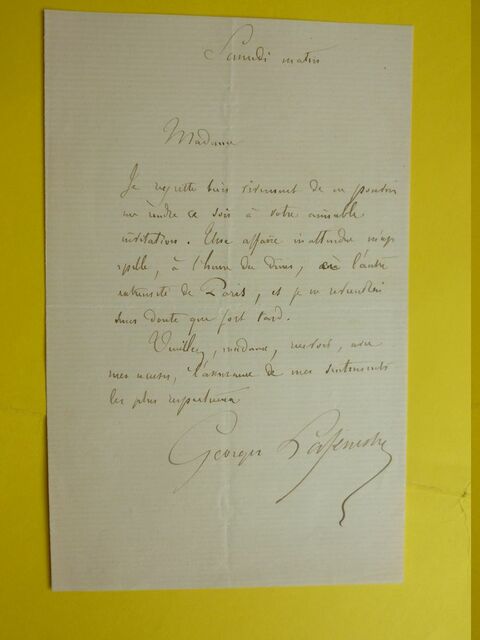 Samedi matin
Madame
Je regrette bien vivement de ne pouvoir
me rendre ce soir à votre aimable
invitation. Une affaire inattendue m'ap
pelle, à l'heure du diner, à l'autre
extrémité de Paris, et je ne reviendrai
sans doute que fort tard.
Veuillez, madame, recevoir, avec
mes excuses, l'assurance de mes sentiments
les plus respectueux
Georges Lafenestre